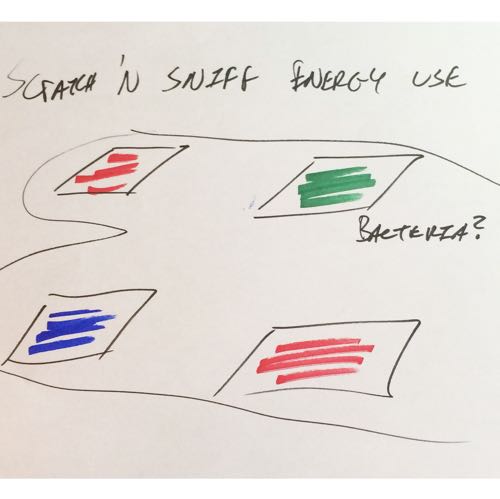 SCRATCH 'N SNIFF ENERGY USE
BACTERIA?